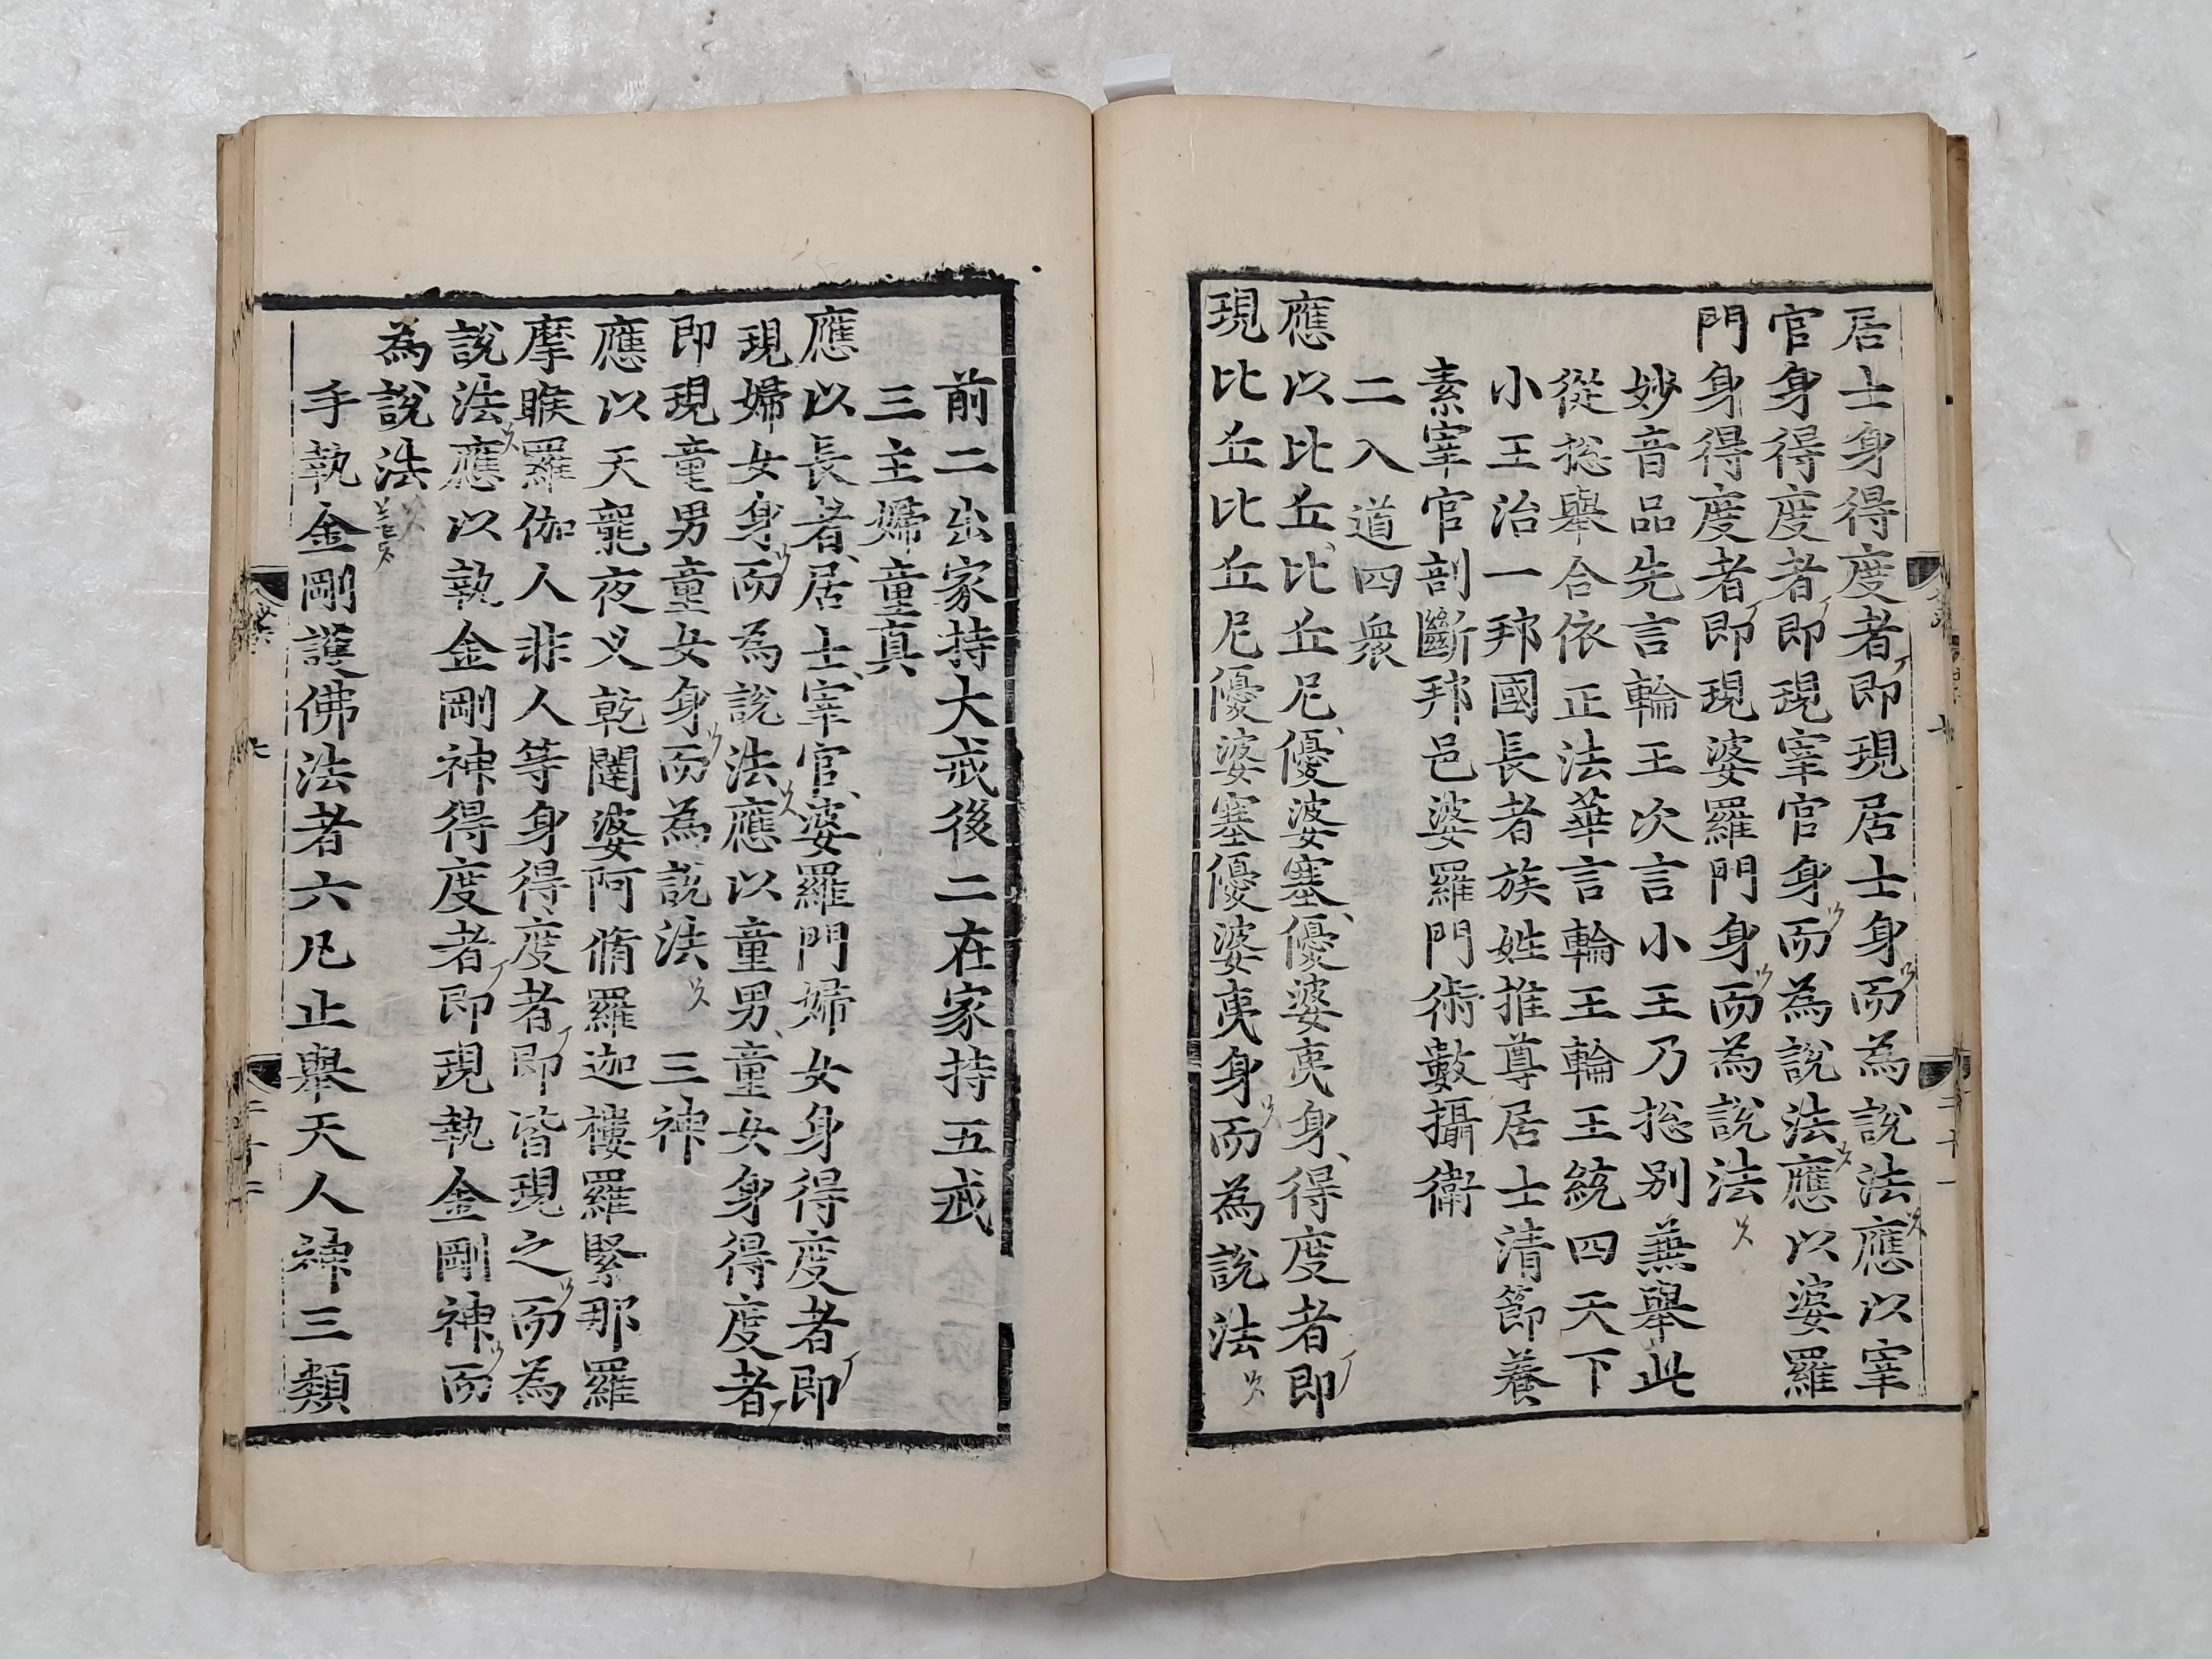 居士身得度者即現居士身而為說法應以宰
官身得度者即現宰官身而為說法應以婆羅
門身得度者即現婆羅門身而為說法
妙音品先言輪王次言小王乃捴別兼舉此
從捴舉合依正法華言輪王輪王統四天下
小王治一邦國長者族姓推尊居士清節養
素宰官剖斷邦邑婆羅門術數攝衛
二入道四衆
應以比丘比丘尼優婆塞優婆夷身得度者即
現比丘比丘尼優婆塞優婆夷身而為說法
前二出家持大戒後二在家持五戒
三主婦童真
應以長者居士宰官婆羅門婦女身得度者即
現婦女身而為說法應以童男童女身得度者
即現童男童女身而為說法 三神
應以天龍夜叉乾闥婆阿脩羅迦樓羅緊那羅
摩睺羅伽人非人等身得度者即皆現之而為
說法應以執金剛神得度者即現執金剛神而
為說法
手執金剛護佛法者六凡止舉天人神三類